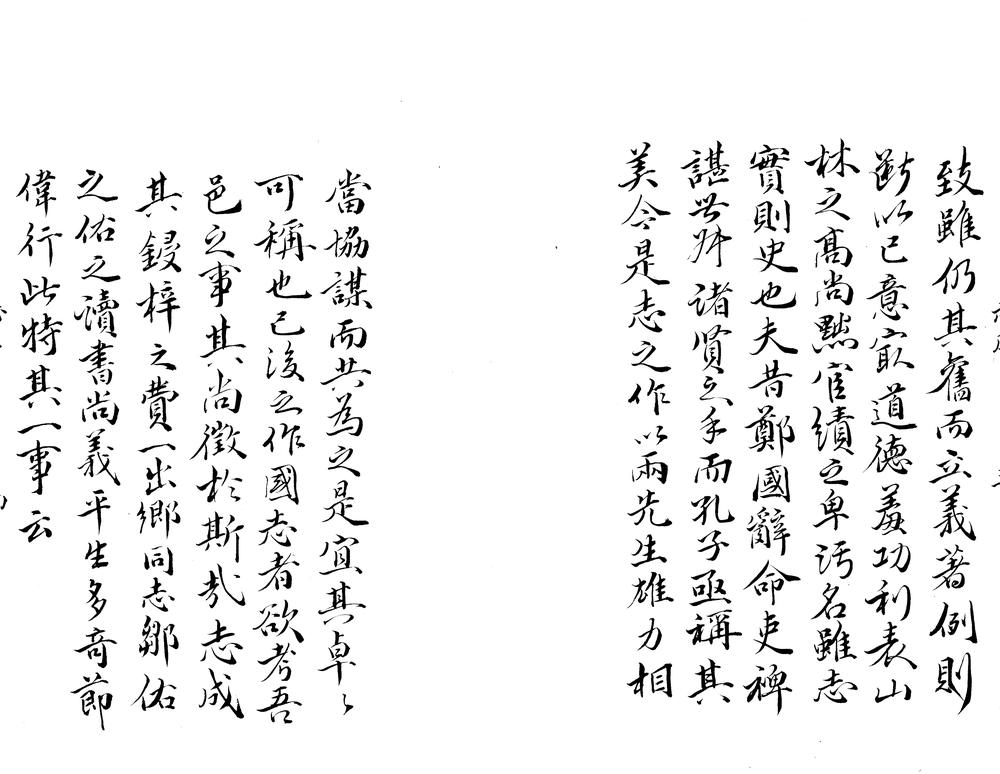 致雖仍其舊而立義著例則
斷以己意㝡道德羞功利表山
林之高尚黜宦績之卑污名雖志
實則史也夫昔鄭國辭命吏裨
諶世叔諸賢之手而孔子亟稱其
美今是志之作以兩先生雄力相
當協謀而共為之是宜其卓〻
可稱也已後之作國志者欲考吾
邑之事其尚徵於斯哉志成
其鋟梓之費一出鄉同志鄒佑
之佑之讀書尚義平生多奇節
偉行此特其一事云